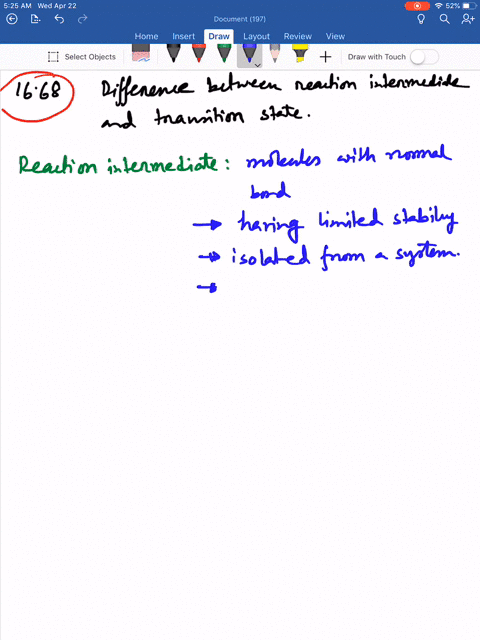 5:25 AM Wed Apr 22
52%
Document (197)
Home Insert Draw Layout Review View
Select Objects
Draw with Touch
16.68 Difference between reaction intermediate
and transition state.
Reaction intermediate: molecules with normal
bond
→ having limited stability
→ isolated from a system.
→